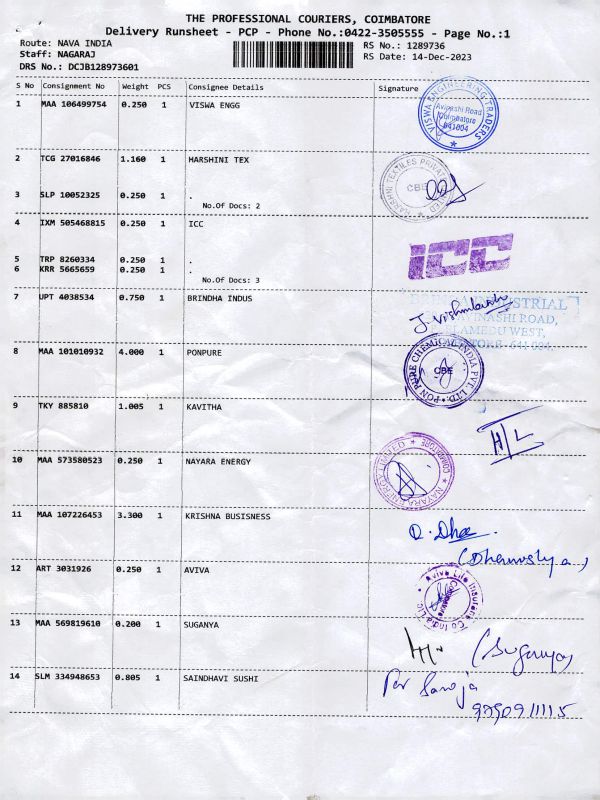 THE PROFESSIONAL COURIERS, COIMBATORE
Delivery Runsheet - PCP - Phone No.:0422-3505555 - Page No.:1
Route: NAVA INDIA RS No.: 1289736
Staff: NAGARAJ RS Date: 14-Dec-2023
DRS No.: DCJB128973601
S No Consignment No Weight PCS Consignee Details Signature
1 MAA 106499754 0.250 1 VISWA ENGG
VISWA ENGINEERING TRADERS
Avinashi Road
Coimbatore
641004
2 TCG 27016846 1.160 1 HARSHINI TEX
HARSHINI TEXTILES PRIVATE LIMITED
CBE
3 SLP 10052325 0.250 1 .
No.Of Docs: 2
4 IXM 505468815 0.250 1 ICC
ICC
5 TRP 8260334 0.250 1 .
6 KRR 5665659 0.250 1 .
No.Of Docs: 3
7 UPT 4038534 0.750 1 BRINDHA INDUS
INDUSTRIAL
AVINASHI ROAD,
PEELAMEDU WEST,
641 004.
8 MAA 101010932 4.000 1 PONPURE
PON PURE CHEMICAL INDIA PVT. LTD.
CBE
9 TKY 885810 1.005 1 KAVITHA
H/L
10 MAA 573580523 0.250 1 NAYARA ENERGY
NAYARA ENERGY LIMITED
COIMBATORE
11 MAA 107226453 3.300 1 KRISHNA BUSISNESS
12 ART 3031926 0.250 1 AVIVA
Aviva Life Insurance Co India Ltd
Coimbatore
13 MAA 569819610 0.200 1 SUGANYA
(Suganya)
14 SLM 334948653 0.805 1 SAINDHAVI SUSHI
Saroja